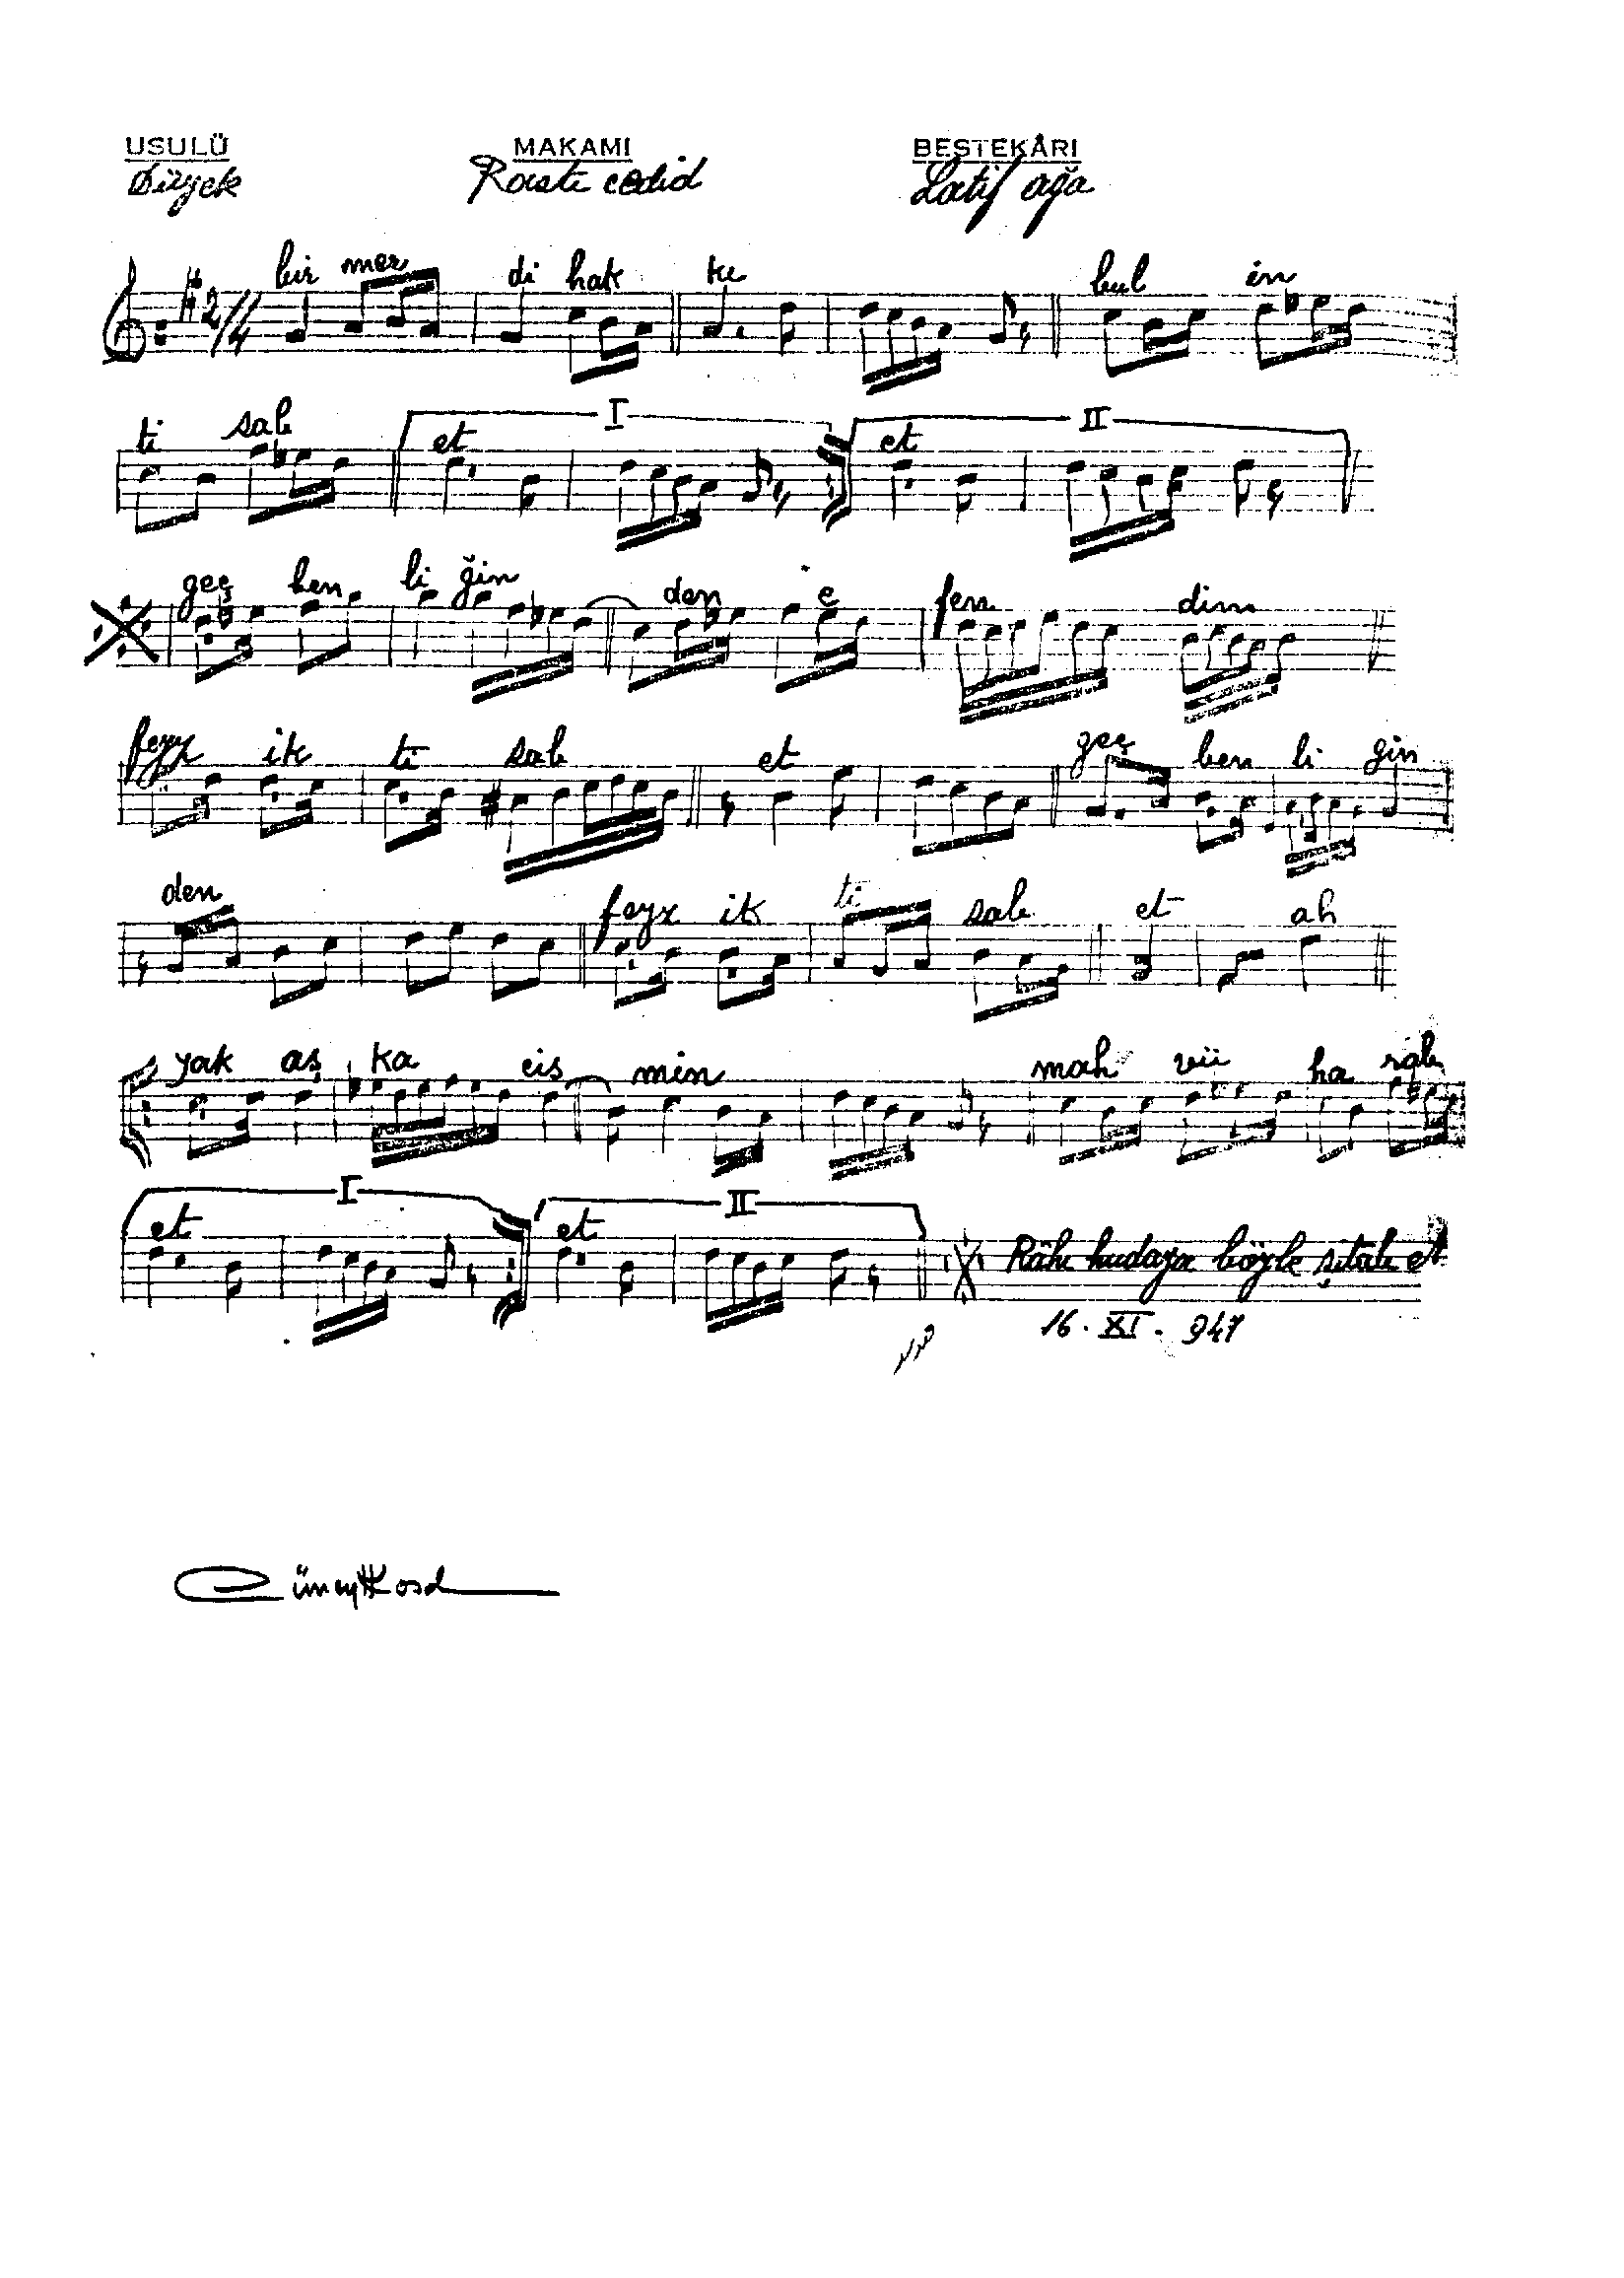 USULÜ MAKAMI BESTEKÂRI
Düyek Rastı cedid Latif ağa
2/4 bir mer di hak ke bul in
ti sab et I et II
geç ben li ğin den e fen dim
feyz ik ti sab et geç ben li ğin
den feyz ik ti sab et ah
yak aş ka cis min mah vü ha rab
et I et II Râhı hudaya böyle şitab et
16. XI. 947
Cüneyt Kosal